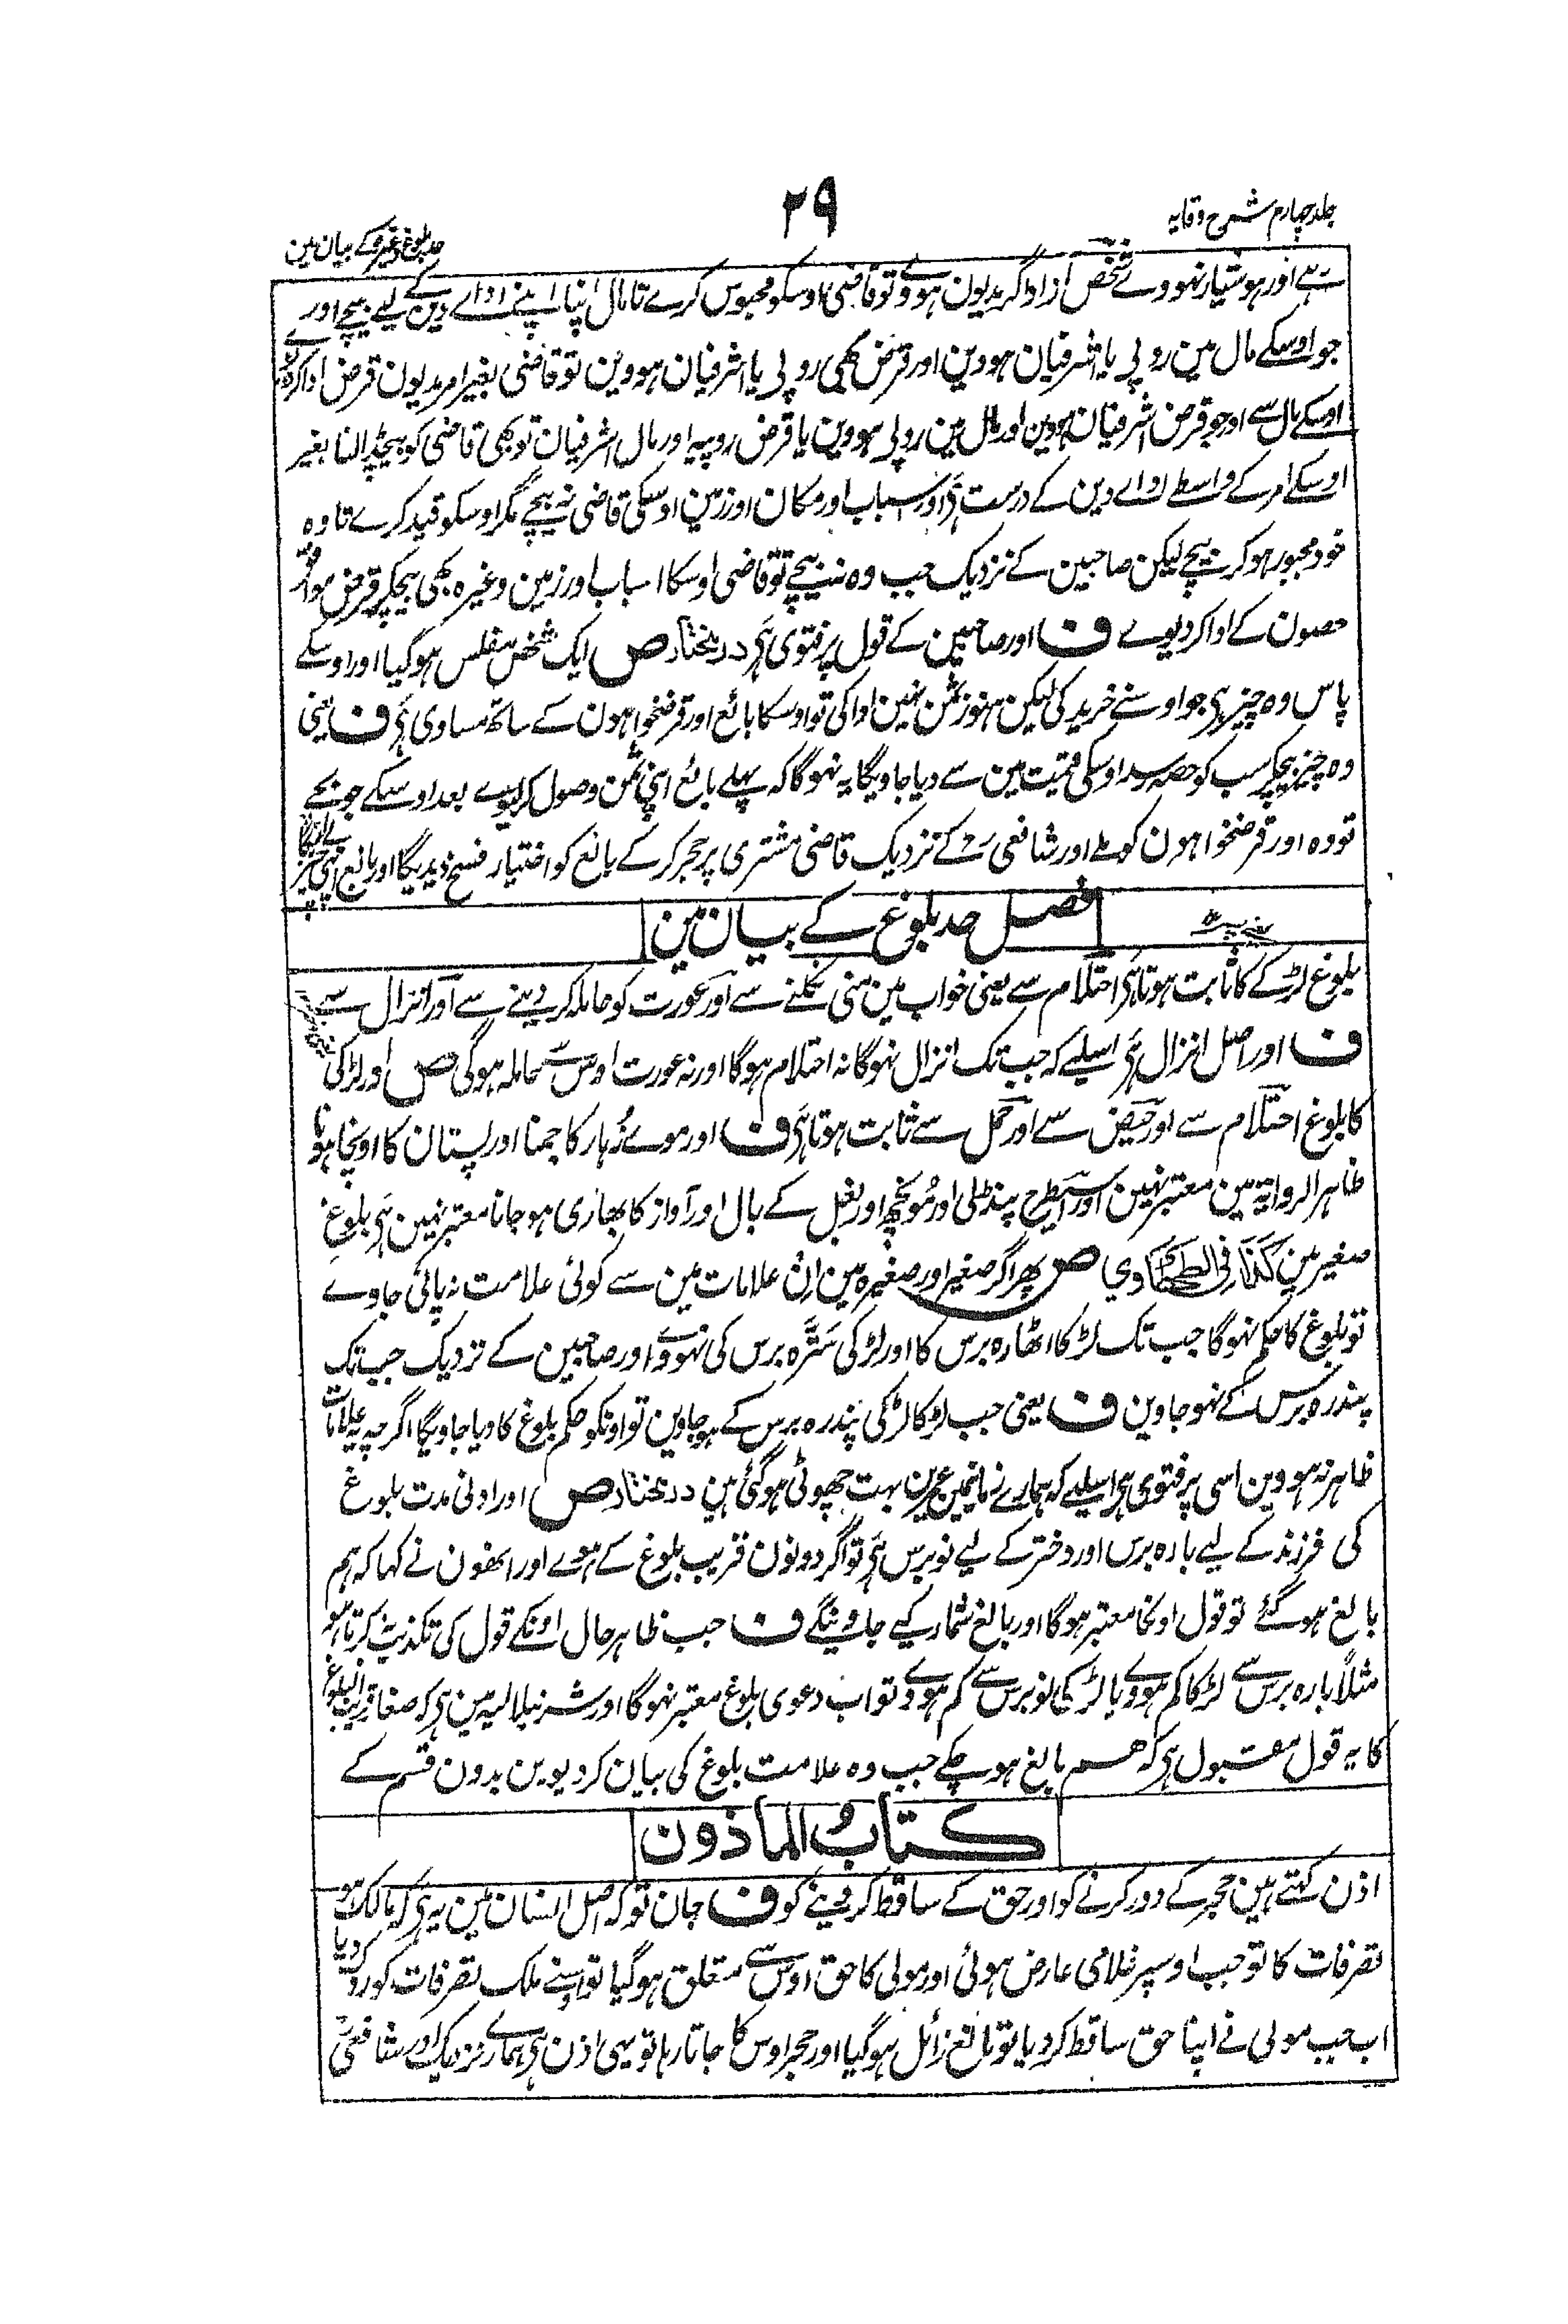 جلد چہارم شرح وقایہ
۲۹
حد بلوغ وغیرہ کے بیان مین
ہے اور ہوشیار نہووے شخص آزاد اگر مدیون ہووے تو قاضی اوسکو محبوس کرے تا مال اپنا اپنے اداے دین کے لیے بیچے اور
جو اوسکے مال مین روپی یا اشرفیان ہووین اور قرض بھی روپی یا اشرفیان ہووین تو قاضی بغیر امر مدیون قرض ادا کردیوے
اوسکے مال سے اور جو قرض اشرفیان ہووین اور مال مین روپی ہووین یا قرض روپیہ اور مال اشرفیان تو بھی قاضی کو بیچڈالنا بغیر
اوسکے امر کے واسطے اداے دین کے درست ہی اور اسباب اور مکان اور زمین اوسکی قاضی نہ بیچے مگر اوسکو قید کرے تا وہ
خود مجبور ہو کر بیچے لیکن صاحبین کے نزدیک جب وہ نہ بیچے تو قاضی اوسکا اسباب اور زمین وغیرہ بھی بیچکر قرض موافق
حصون کے ادا کردیوے ف اور صاحبین کے قول پر فتوی ہی در مختار ص ایک شخص مفلس ہوگیا اور اوسکے
پاس وہ چیز ہی جو اوسنے خرید کی لیکن ہنوز ثمن نہین ادا کی تو اوسکا بائع اور قرضخواہون کے ساتھ مساوی ہی ف یعنی
وہ چیز بیچکر سب کو حصہ رسد اوسکی قیمت مین سے دیا جاویگا یہ نہوگا کہ پہلے بائع اپنی ثمن وصول کرلیوے بعد اوسکے جو بچے
تو وہ اور قرضخواہون کو ملے اور شافعی رح کے نزدیک قاضی مشتری پر حجر کرکے بائع کو اختیار فسخ دیدیگا اور بائع اپنی چیز
فصل حد بلوغ کے بیان مین
بلوغ لڑکے کا ثابت ہوتا ہی احتلام سے یعنی خواب مین منی نکلنے سے اور عورت کو حاملہ کردینے سے اور انزال سے
ف اور اصل انزال ہی اسلیے کہ جب تک انزال نہوگا نہ احتلام ہوگا اور نہ عورت اوس سے حاملہ ہوگی ص اور لڑکی
کا بلوغ احتلام سے اور حیض سے اور حمل سے ثابت ہوتا ہی ف اور موے زہار کا جمنا اور پستان کا اونچا ہونا
ظاہر الروایۃ مین معتبر نہین اور اسیطرح پنڈلی اور مونچھ اور بغل کے بال اور آواز کا بھاری ہو جانا معتبر نہین ہی بلوغ
صغیر مین کذا فی الطحطاوی ص پھر اگر صغیر اور صغیرہ مین ان علامات مین سے کوئی علامت نہ پائی جاوے
تو بلوغ کا حکم نہوگا جب تک لڑکا اٹھارہ برس کا اور لڑکی سترہ برس کی نہووے اور صاحبین کے نزدیک جب تک
پندرہ برس کے نہو جاوین ف یعنی جب لڑکا لڑکی پندرہ برس کے ہو جاوین تو اونکو حکم بلوغ کا دیا جاویگا اگرچہ یہ علامات
ظاہر نہ ہووین اسی پر فتوی ہی اسلیے کہ ہمارے زمانیمین عمرین بہت چھوٹی ہوگئی ہین در مختار ص اور ادنی مدت بلوغ
کی فرزند کے لیے بارہ برس اور دختر کے لیے نو برس ہی تو اگر دونون قریب بلوغ کے ہوے اور انھون نے کہا کہ ہم
بالغ ہوگئے تو قول اونکا معتبر ہوگا اور بالغ شمار کیے جاوینگے ف جب ظاہر حال اونکے قول کی تکذیب نہ کرتا ہو
مثلاً بارہ برس سے لڑکا کم ہووے یا لڑکی نو برس سے کم ہووے تو اب دعوی بلوغ معتبر نہوگا اور شرنبلالیہ مین ہی کہ صغار قریب البلوغ
کا یہ قول مقبول ہی کہ ہم بالغ ہو چکے جب وہ علامت بلوغ کی بیان کردیوین بدون قسم کے
کتاب الماذون
اذن کہتے ہین حجر کے دور کرنے کو اور حق کے ساقط کردینے کو ف جان تو کہ اصل انسان مین یہ ہی کہ مالک ہو
تصرفات کا تو جب اوسپر غلامی عارض ہوئی اور مولی کا حق اوس سے متعلق ہوگیا تو اسنے ملک تصرفات کو رد کردیا
اب جب مولی نے اپنا حق ساقط کردیا تو مانع زائل ہوگیا اور حجر اوس کا جاتا رہا تو یہی اذن ہی ہمارے نزدیک اور شافعی